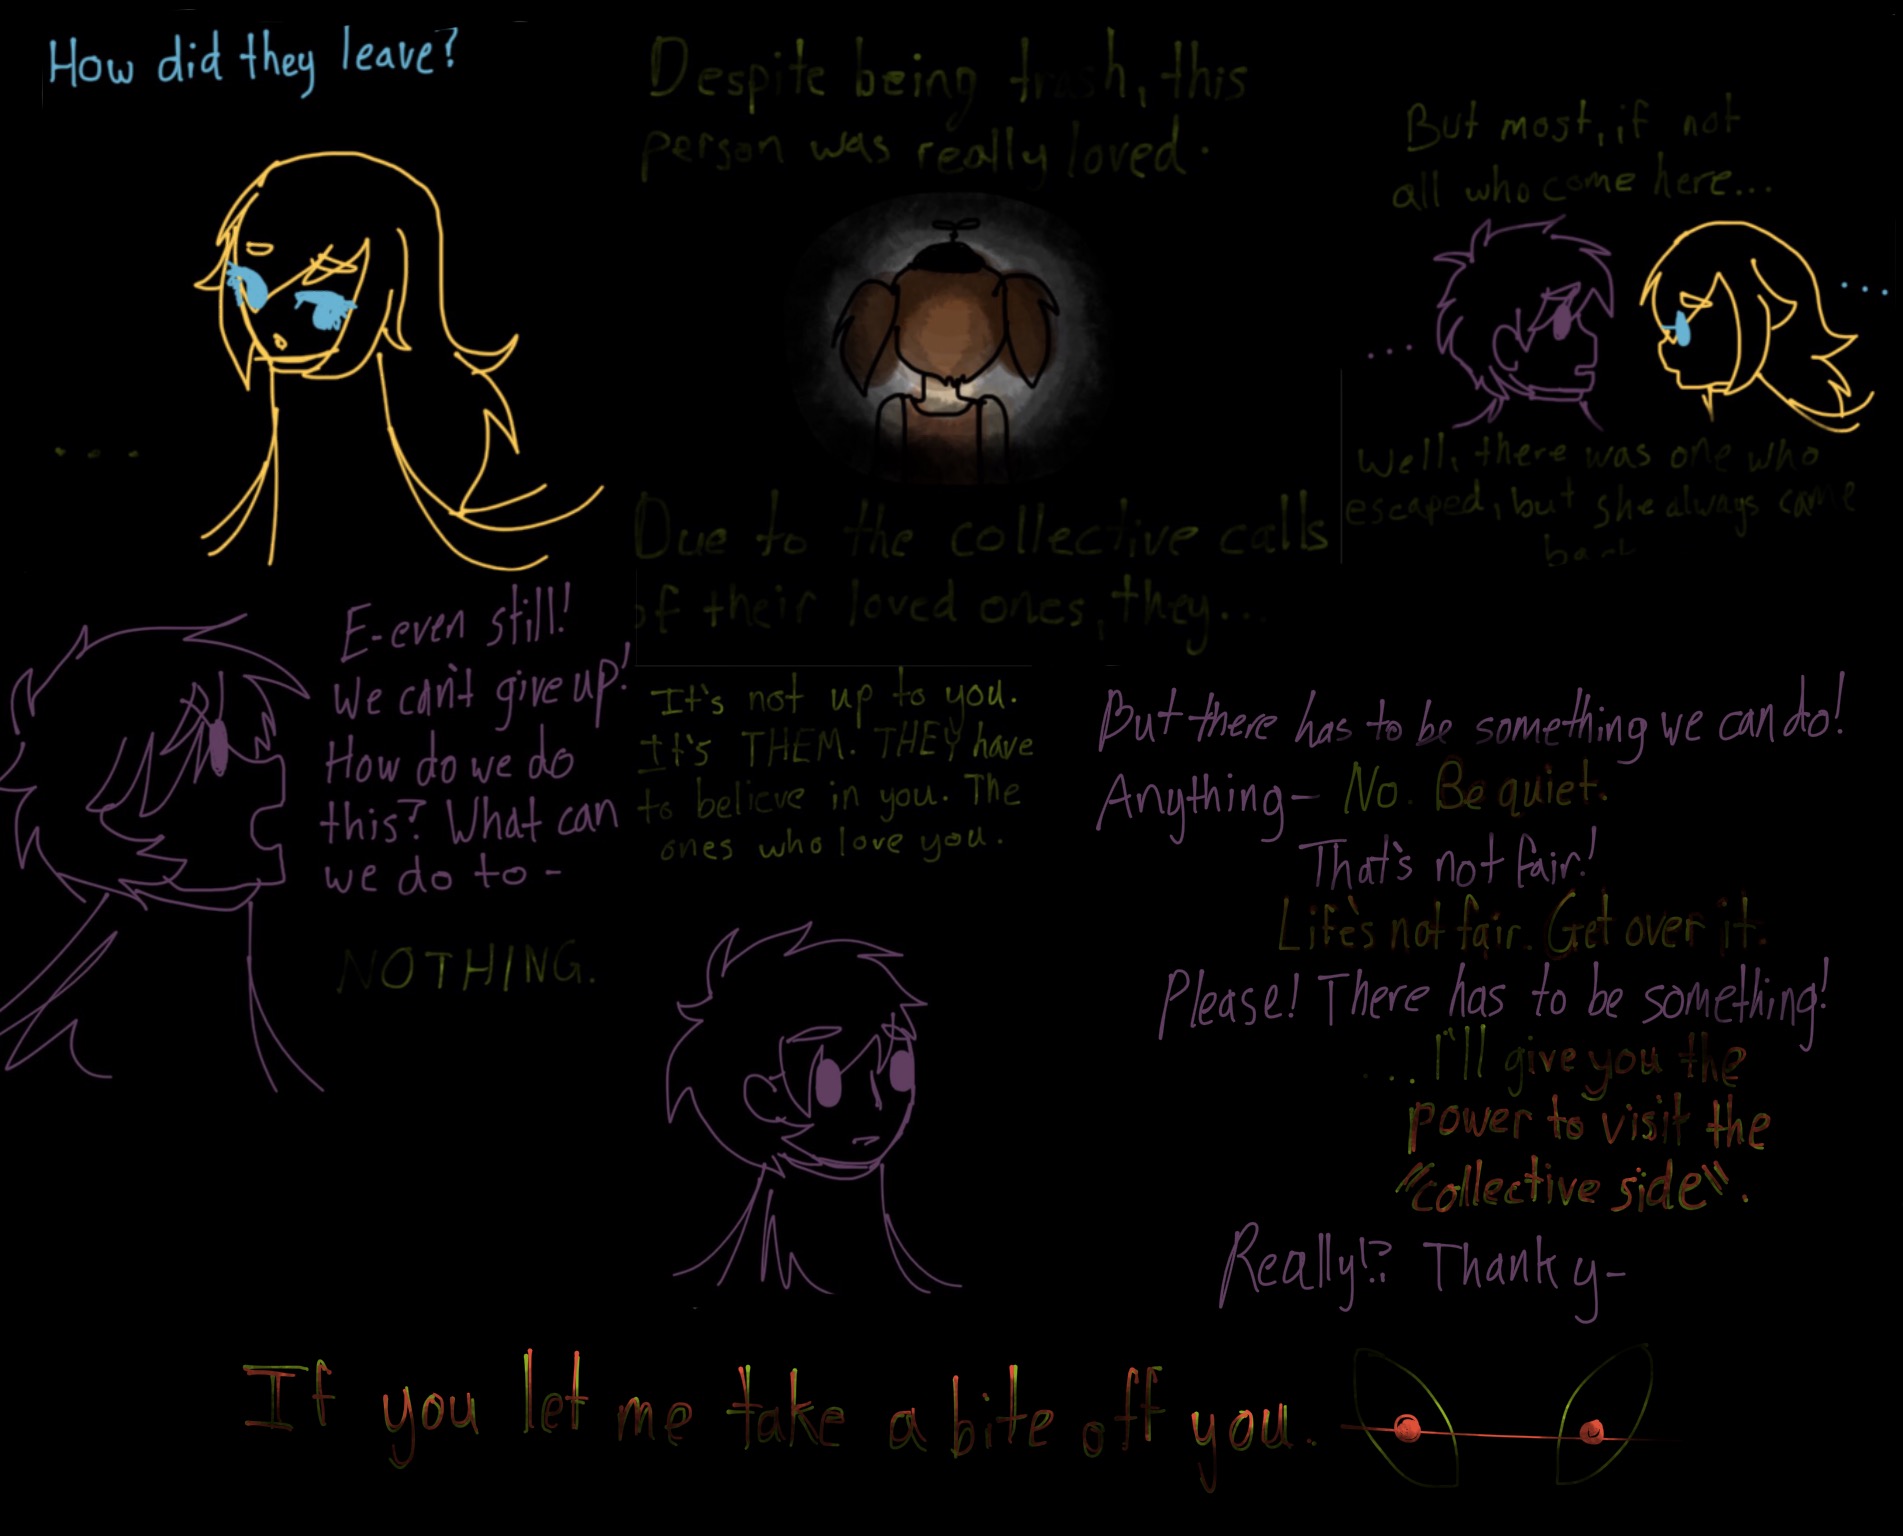 How did they leave?
....
Despite being trash, this
person was really loved.
Due to the collective calls
of their loved ones, they...
But most, if not
all who come here...
...
...
Well, there was one who
escaped, but she always came
back
E-even still!
We can't give up!
How do we do
this? What can
we do to -
NOTHING.
It's not up to you.
It's THEM. THEY have
to believe in you. The
ones who love you.
But there has to be something we can do!
Anything- No. Be quiet.
That's not fair!
Life's not fair. Get over it.
Please! There has to be something!
...I'll give you the
power to visit the
"collective side".
Really!? Thank y-
If you let me take a bite off you.